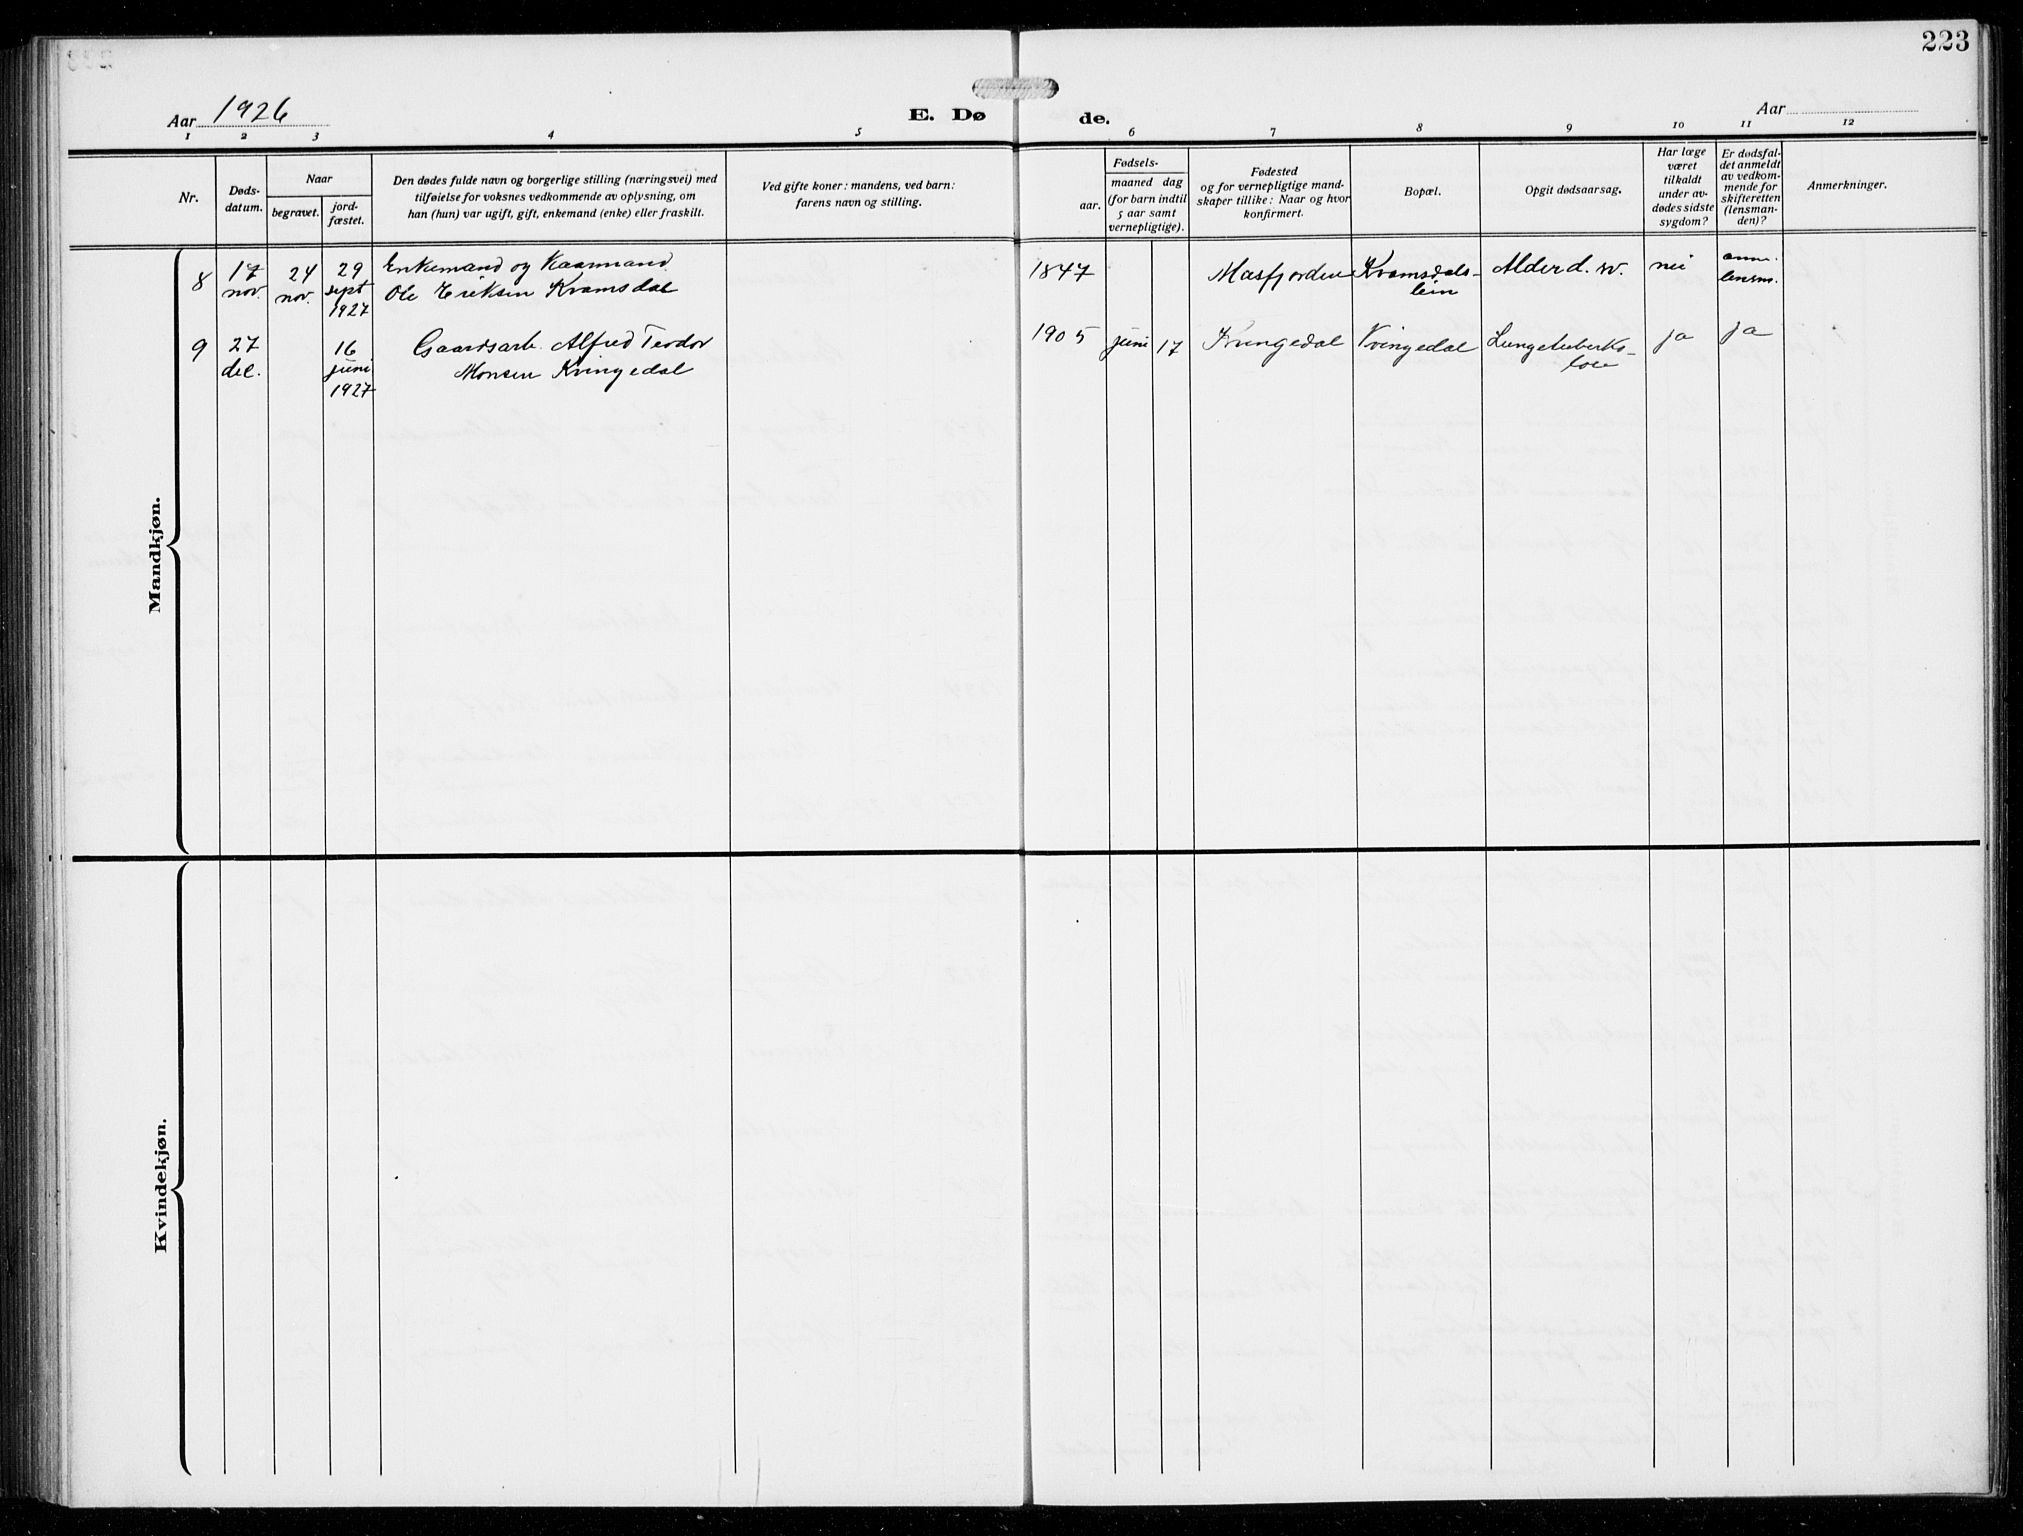 223
Aar 1926
E. Dø
de.
Aar
1 2 3 4 5 6 7 8 9 10 11 12
Nr.
Døds-
datum.
Naar
begravet.
jord-
fæstet.
Den dødes fulde navn og borgerlige stilling (næringsvei) med
tilføielse for voksnes vedkommende av oplysning, om
han (hun) var ugift, gift, enkemand (enke) eller fraskilt.
Ved gifte koner: mandens, ved barn:
farens navn og stilling.
Fødsels-
aar.
maaned dag
(for barn indtil
5 aar samt
vernepligtige).
Fødested
og for vernepligtige mand-
skaper tillike: Naar og hvor
konfirmert.
Bopæl.
Opgit dødsaarsag.
Har læge
været
tilkaldt
under av-
dødes sidste
sygdom?
Er dødsfal-
det anmeldt
av vedkom-
mende for
skifteretten
(lensman-
den)?
Anmerkninger.
Mandkjøn.
8
17
nov.
24
nov.
29
sept
1927
Enkemand og Kaarmand
Ole Eriksen Kvamsdal
1847
Masfjorden
Kvamsdals-
lein
Alderd. sv.
nei
anm.
lensm.
9
27
dec.
16
juni
1927
Gaardsarb. Alfred Teodor
Monsen Kvingedal
1905
juni
17
Kvingedal
Kvingedal
Lungetuberku-
lose
ja
ja
Kvindekjøn.